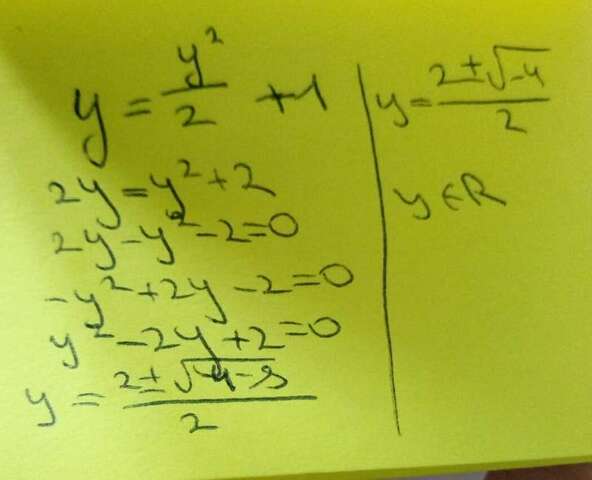 y = y²/2 + 1
2y = y² + 2
2y - y² - 2 = 0
-y² + 2y - 2 = 0
y² - 2y + 2 = 0
y = (2 ± √(4 - 8))/2
y = (2 ± √-4)/2
y ∈ R